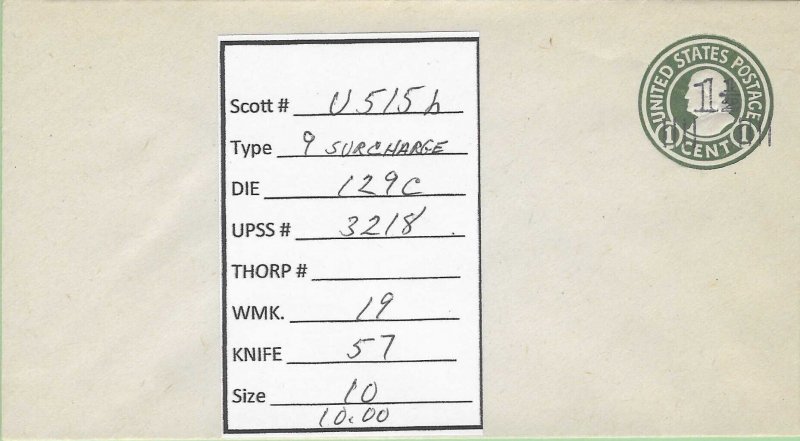 Scott # U515h
Type 9 SURCHARGE
DIE 129C
UPSS # 3218
THORP #
WMK. 19
KNIFE 57
Size 10
10.00
UNITED STATES POSTAGE
1 CENT 1